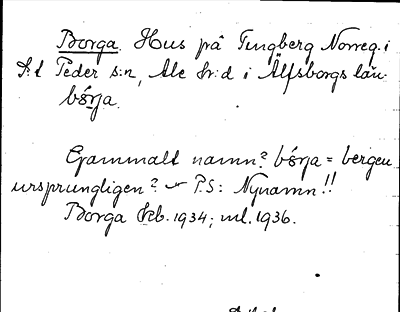 Borga. Hus på Tingberg Norreg. i
S:t Peder s:n, Ale hr:d i Älfsborgs län.
bórja.
Gammalt namn? bórja = bergen
ursprungligen? — P.S: Nynamn!!
Borga Ekb. 1934; uel. 1936.